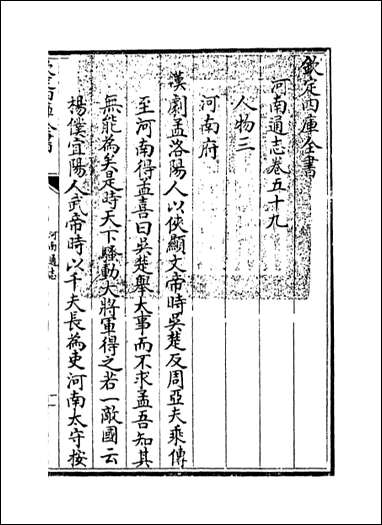 欽定四庫全書
河南通志卷五十九
人物三
河南府
漢劇孟洛陽人以俠顯文帝時吳楚反周亞夫乘傳
至河南得孟喜曰吳楚舉大事而不求孟吾知其
無能為矣是時天下騷動大將軍得之若一敵國云
楊僕宜陽人武帝時以千夫長為吏河南太守按
欽定四庫全書
河南通志
一